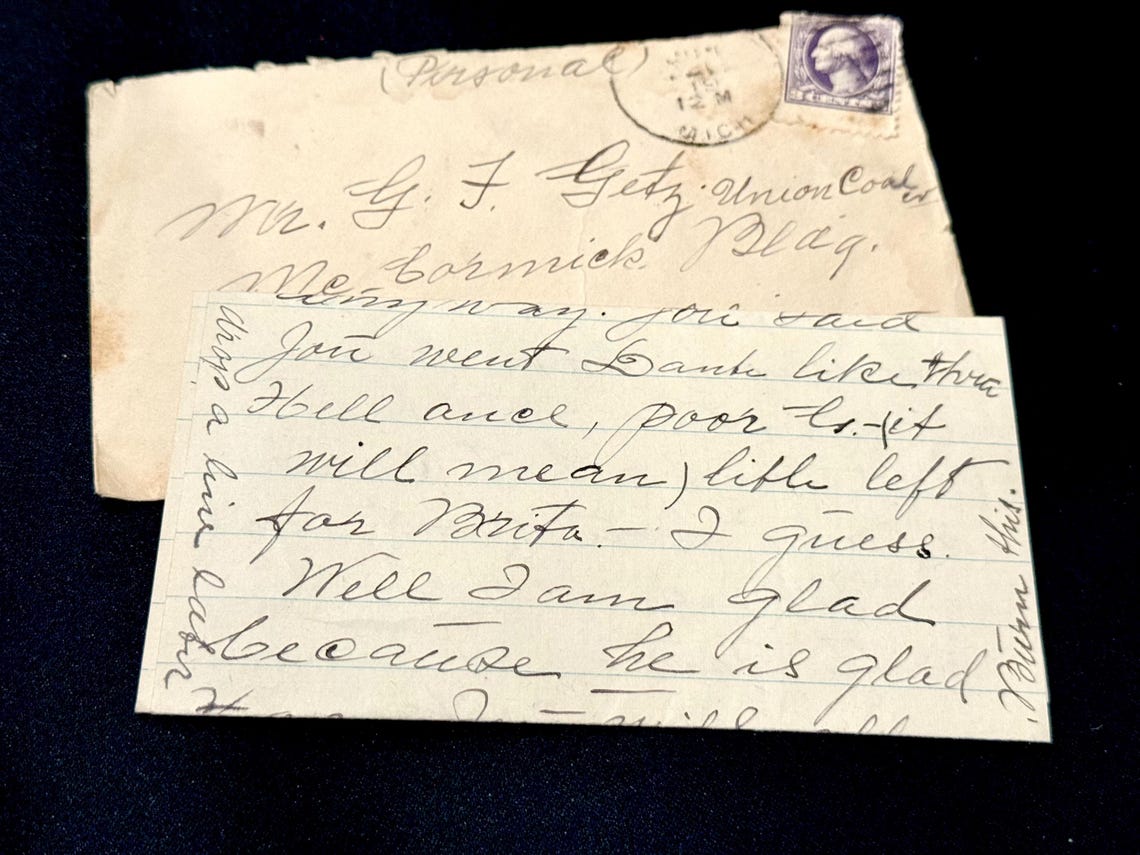 (Personal)
MICH
Mr. G. F. Getz. Union Coal
McCormick Bldg.
any way. you said
You went Dante like thru
Hell and, poor G.-(it
will mean) little left
for Brita.- I guess.
Well I am glad
because he is glad
You will all
drop a line later
Burn this.